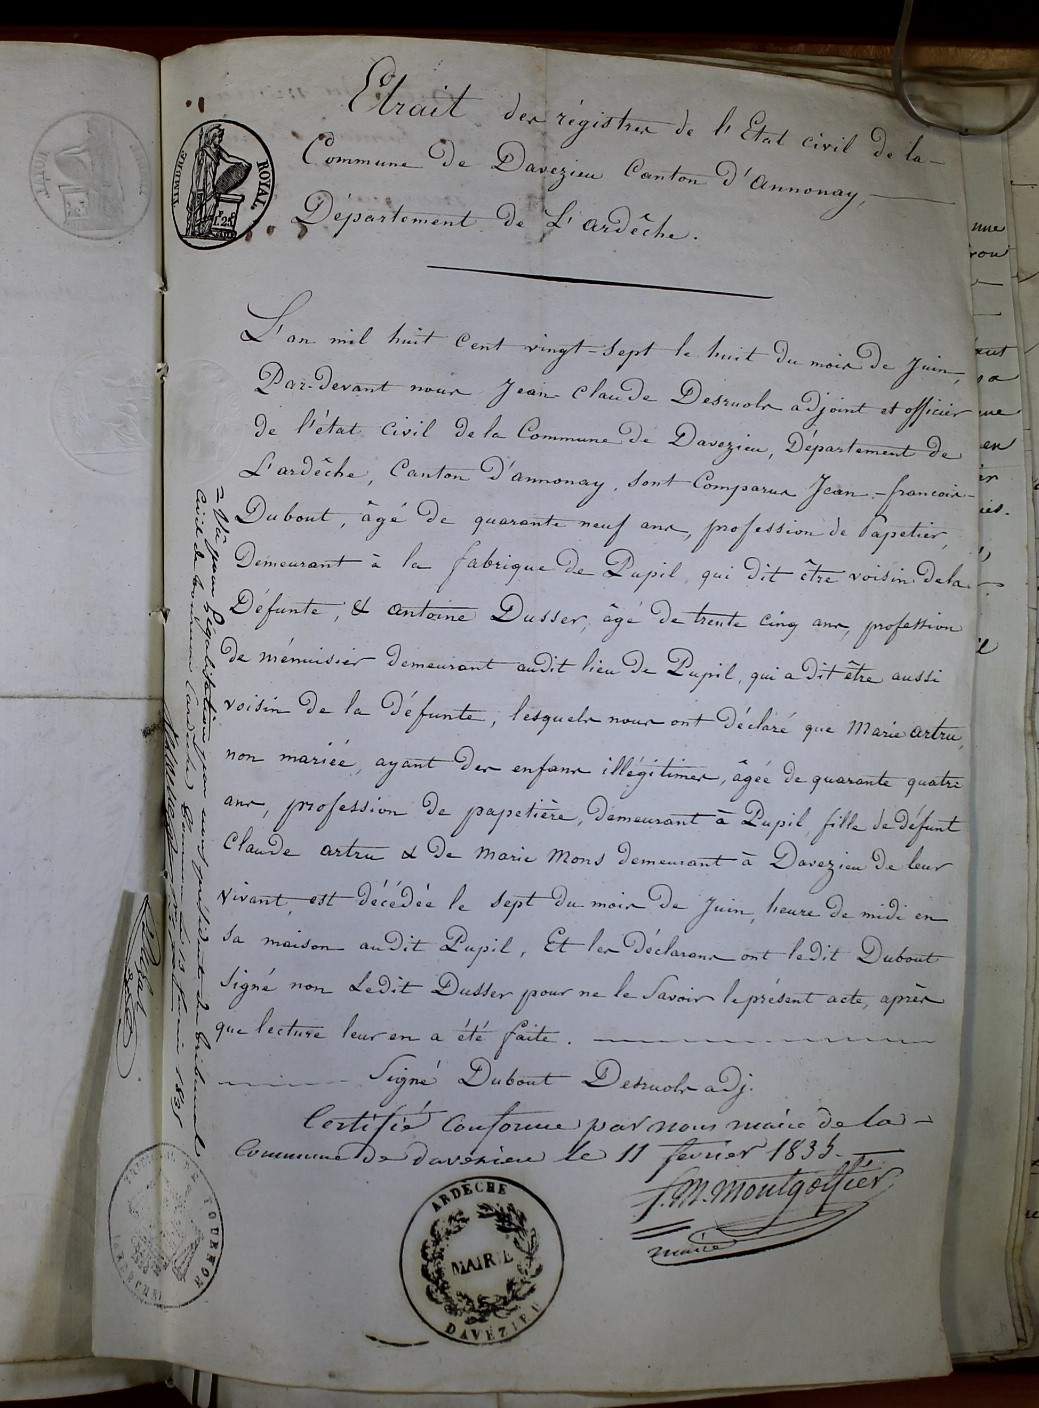 Etrait des régistres de l'Etat civil de la
Commune de Davezieu Canton d'annonay,
Département de L'ardêche.
TIMBRE ROYAL
L'an mil huit cent vingt-sept le huit du mois de Juin,
Par-devant nous Jean Claude Desruols adjoint et officier
de l'état civil de la Commune de Davezieu, Département de
L'ardêche, Canton d'annonay, sont Comparus Jean-francois-
Dubout, âgé de quarante neuf ans, profession de Papetier,
Demeurant à la fabrique de Pupil, qui dit être voisin de la
Défunte, & antoine Dusser, âgé de trente cinq ans, profession
de ménuisier demeurant audit lieu de Pupil, qui a dit être aussi
voisin de la défunte, lesquels nous ont déclaré que Marie artru,
non mariée, ayant des enfans illégitimes, âgée de quarante quatre
ans, profession de papetière, demeurant à Pupil, fille de défunt
Claude artru & de Marie Mons demeurant à Davezieu de leur
vivant, est décédée le sept du mois de Juin, heure de midi en
sa maison audit Pupil, Et les déclarans ont ledit Dubout
signé non Ledit Dusser pour ne le savoir le présent acte, après
que lecture leur en a été faite.
Signé Dubout Desruols adj.
Certifié Conforme par nous maire de la
Commune de davezieu le 11 fevrier 1835
f. M. Montgolfier
maire
ARDÈCHE
MAIRIE
DAVÉZIEU
Vu pour Légalisation par nous président du tribunal
civil de Tournon (ardèche) 1835
TRIBUNAL DE TOURNON
ARDECHE